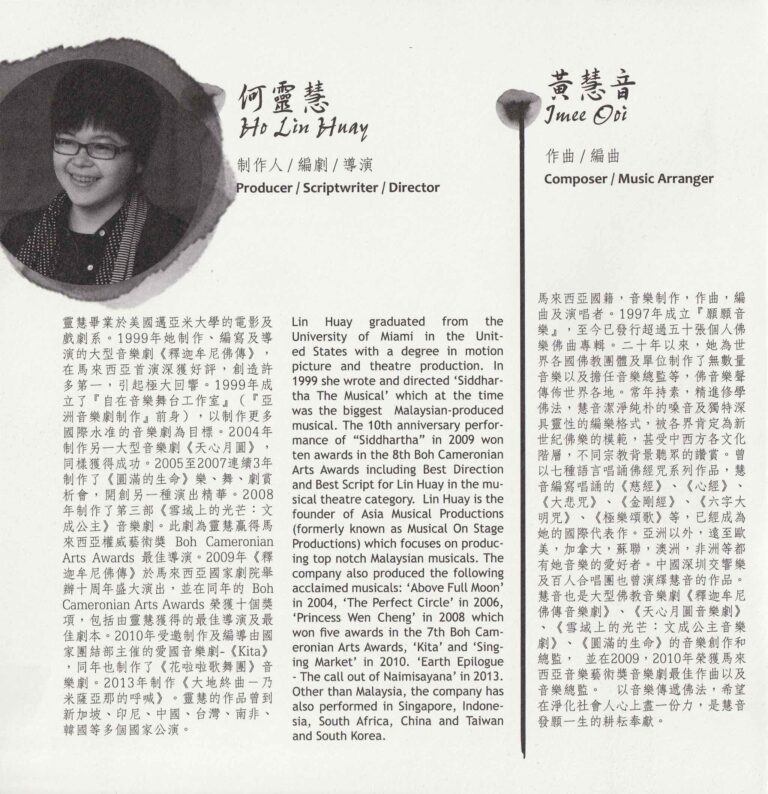 何靈慧
Ho Lin Huay
制作人/編劇/導演
Producer / Scriptwriter / Director
靈慧畢業於美國邁亞米大學的電影及
戲劇系。1999年她制作、編寫及導
演的大型音樂劇《釋迦牟尼佛傳》，
在馬來西亞首演深獲好評，創造許
多第一，引起極大回響。1999年成
立了『自在音樂舞台工作室』（『亞
洲音樂劇制作』前身），以制作更多
國際水准的音樂劇為目標。2004年
制作另一大型音樂劇《天心月圓》，
同樣獲得成功。2005至2007連續3年
制作了《圓滿的生命》樂、舞、劇賞
析會，開創另一種演出精華。2008
年制作了第三部《雪域上的光芒：文
成公主》音樂劇。此劇為靈慧贏得馬
來西亞權威藝術獎 Boh Cameronian
Arts Awards 最佳導演。2009年《釋
迦牟尼佛傳》於馬來西亞國家劇院舉
辦十周年盛大演出，並在同年的 Boh
Cameronian Arts Awards 榮獲十個獎
項，包括由靈慧獲得的最佳導演及最
佳劇本。2010年受邀制作及編導由國
家團結部主催的愛國音樂劇-《Kita》
，同年也制作了《花啦啦歌舞團》音
樂劇。2013年制作《大地終曲－乃
米薩亞那的呼喊》。靈慧的作品曾到
新加坡、印尼、中國、台灣、南非、
韓國等多個國家公演。
Lin Huay graduated from the
University of Miami in the Unit-
ed States with a degree in motion
picture and theatre production. In
1999 she wrote and directed ‘Siddhar-
tha The Musical’ which at the time
was the biggest Malaysian-produced
musical. The 10th anniversary perfor-
mance of “Siddhartha” in 2009 won
ten awards in the 8th Boh Cameronian
Arts Awards including Best Direction
and Best Script for Lin Huay in the mu-
sical theatre category. Lin Huay is the
founder of Asia Musical Productions
(formerly known as Musical On Stage
Productions) which focuses on produc-
ing top notch Malaysian musicals. The
company also produced the following
acclaimed musicals: ‘Above Full Moon’
in 2004, ‘The Perfect Circle’ in 2006,
‘Princess Wen Cheng’ in 2008 which
won five awards in the 7th Boh Cam-
eronian Arts Awards, ‘Kita’ and ‘Sing-
ing Market’ in 2010. ‘Earth Epilogue
- The call out of Naimisayana’ in 2013.
Other than Malaysia, the company has
also performed in Singapore, Indone-
sia, South Africa, China and Taiwan
and South Korea.
黃慧音
Imee Ooi
作曲/編曲
Composer / Music Arranger
馬來西亞國籍，音樂制作，作曲，編
曲及演唱者。1997年成立『願願音
樂』，至今已發行超過五十張個人佛
樂佛曲專輯。二十年以來，她為世
界各國佛教團體及單位制作了無數量
音樂以及擔任音樂總監等，佛音樂聲
傳佈世界各地。常年持素，精進修學
佛法，慧音潔淨純朴的嗓音及獨特深
具靈性的編樂格式，被各界肯定為新
世紀佛樂的模範，甚受中西方各文化
階層，不同宗教背景聽眾的讚賞。曾
以七種語言唱誦佛經咒系列作品，慧
音編寫唱誦的《慈經》、《心經》、
《大悲咒》、《金剛經》、《六字大
明咒》、《極樂頌歌》等，已經成為
她的國際代表作。亞洲以外，遠至歐
美，加拿大，蘇聯，澳洲，非洲等都
有她音樂的愛好者。中國深圳交響樂
及百人合唱團也曾演繹慧音的作品。
慧音也是大型佛教音樂劇《釋迦牟尼
佛傳音樂劇》、《天心月圓音樂劇》
、《雪域上的光芒：文成公主音樂
劇》、《圓滿的生命》的音樂創作和
總監， 並在2009，2010年榮獲馬來
西亞音樂藝術獎音樂劇最佳作曲以及
音樂總監。 以音樂傳遞佛法，希望
在淨化社會人心上盡一份力，是慧音
發願一生的耕耘奉獻。